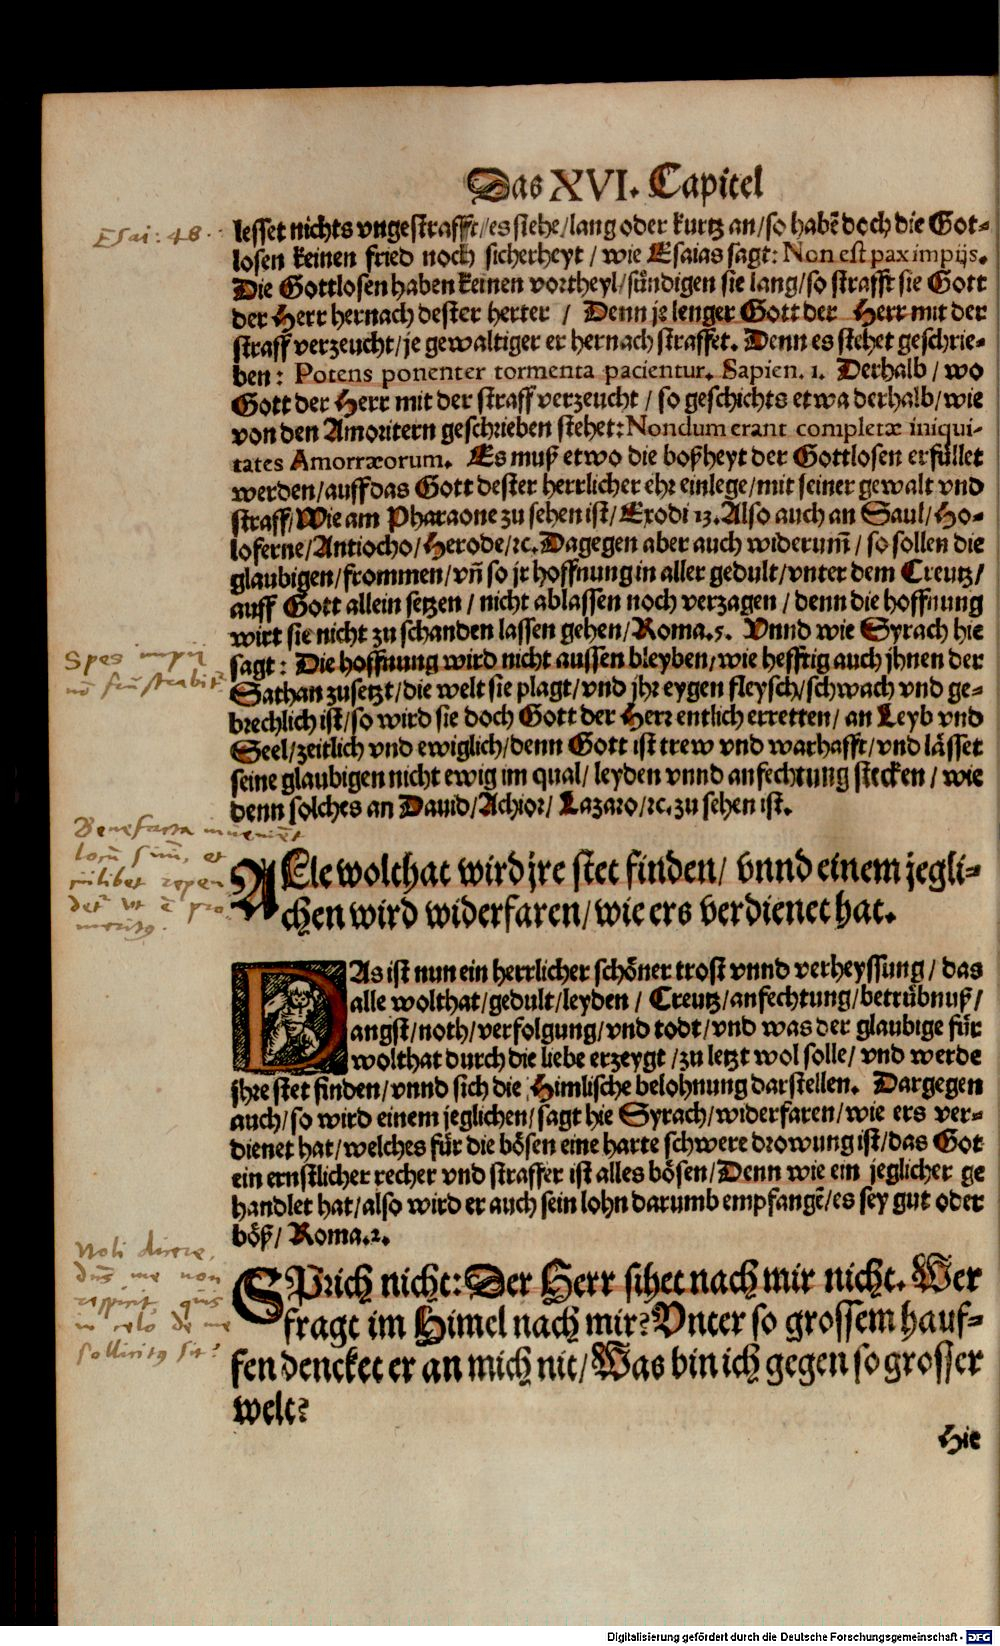 Das XVI. Capitel
Esai: 48.
lesset nichts vngestrafft/es siehe/lang oder kurtz an/so habẽ doch die Got-
losen keinen fried noch sicherheyt / wie Esaias sagt: Non est pax impijs.
Die Gottlosen haben keinen vortheyl/sündigen sie lang/so strafft sie Gott
der Herr hernach dester herter / Denn je lenger Gott der Herr mit der
straff verzeucht/je gewaltiger er hernach straffet. Denn es stehet geschrie-
ben: Potens ponenter tormenta pacientur. Sapien. 1. Derhalb / wo
Gott der Herr mit der straff verzeucht / so geschichts etwa derhalb/wie
von den Amoritern geschrieben stehet: Nondum erant completæ iniqui-
tates Amorræorum. Es muß etwo die boßheyt der Gottlosen erfüllet
werden/auff das Gott dester herrlicher ehr einlege/mit seiner gewalt vnd
straff/Wie am Pharaone zu sehen ist/Exodi 13. Also auch an Saul/Ho-
loferne/Antiocho/Herode/ꝛc. Dagegen aber auch widerum̃ / so sollen die
glaubigen/frommen/vñ so jr hoffnung in aller gedult/vnter dem Creutz/
auff Gott allein setzen / nicht ablassen noch verzagen / denn die hoffnung
wirt sie nicht zu schanden lassen gehen/Roma.5. Vnnd wie Syrach hie
Spes impij
nõ frustrabit̃
sagt: Die hoffnung wird nicht aussen bleyben/wie hefftig auch jhnen der
Sathan zusetzt/die welt sie plagt/vnd jhr eygen fleysch/schwach vnd ge-
brechlich ist/so wird sie doch Gott der Herr entlich erretten/ an Leyb vnd
Seel/zeitlich vnd ewiglich/denn Gott ist trew vnd warhafft/vnd lässet
seine glaubigen nicht ewig im qual/ leyden vnnd anfechtung stecken / wie
denn solches an Dauid/Achior/ Lazaro/ꝛc. zu sehen ist.
Benefacta inueniẽt
locũ suũ, et
cuilibet repen
det̃ vt ẽ pro
meritꝰ.
ALle wolthat wird jre stet finden/ vnnd einem jegli-
chen wird widerfaren/wie ers verdienet hat.
DAs ist nun ein herrlicher schöner trost vnnd verheyssung/ das
alle wolthat/gedult/leyden / Creutz/anfechtung/betrübnuß/
angst/noth/verfolgung/vnd todt/vnd was der glaubige für
wolthat durch die liebe erzeygt /zu letzt wol solle/ vnd werde
jhre stet finden/vnnd sich die Himlische belohnung darstellen. Dargegen
auch/so wird einem jeglichen/sagt hie Syrach/widerfaren/wie ers ver-
dienet hat/welches für die bösen eine harte schwere drowung ist/das Got
ein ernstlicher recher vnd straffer ist alles bösen/Denn wie ein jeglicher ge
handlet hat/also wird er auch sein lohn darumb empfangẽ/es sey gut oder
böß/ Roma.2.
Noli dicere,
Dñs me non
respicit, quis
in celo de me
sollicitꝰ sit?
SPrich nicht: Der Herr sihet nach mir nicht. Wer
fragt im Himel nach mir? Vnter so grossem hauf-
fen dencket er an mich nit/Was bin ich gegen so grosser
welt?
Hie
Digitalisierung gefördert durch die Deutsche Forschungsgemeinschaft - DFG